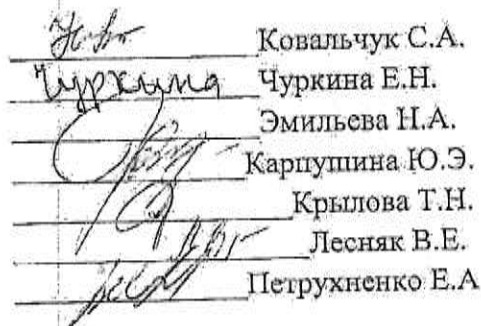 Ковальчук С.А.
Чуркина Чуркина Е.Н.
Эмильева Н.А.
Карпушина Ю.Э.
Крылова Т.Н.
Лесняк В.Е.
Петрухненко Е.А